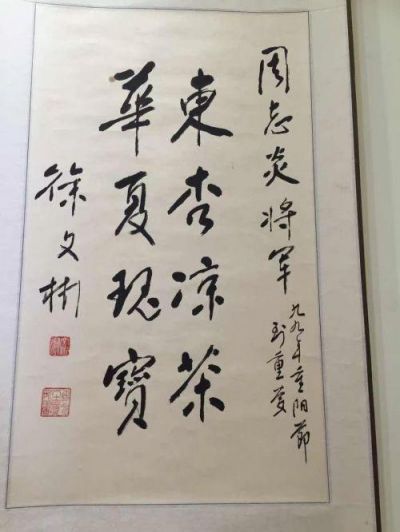 周志炎将军
九九年重阳節
到重庆
東杏凉茶
華夏瑰寶
徐文彬